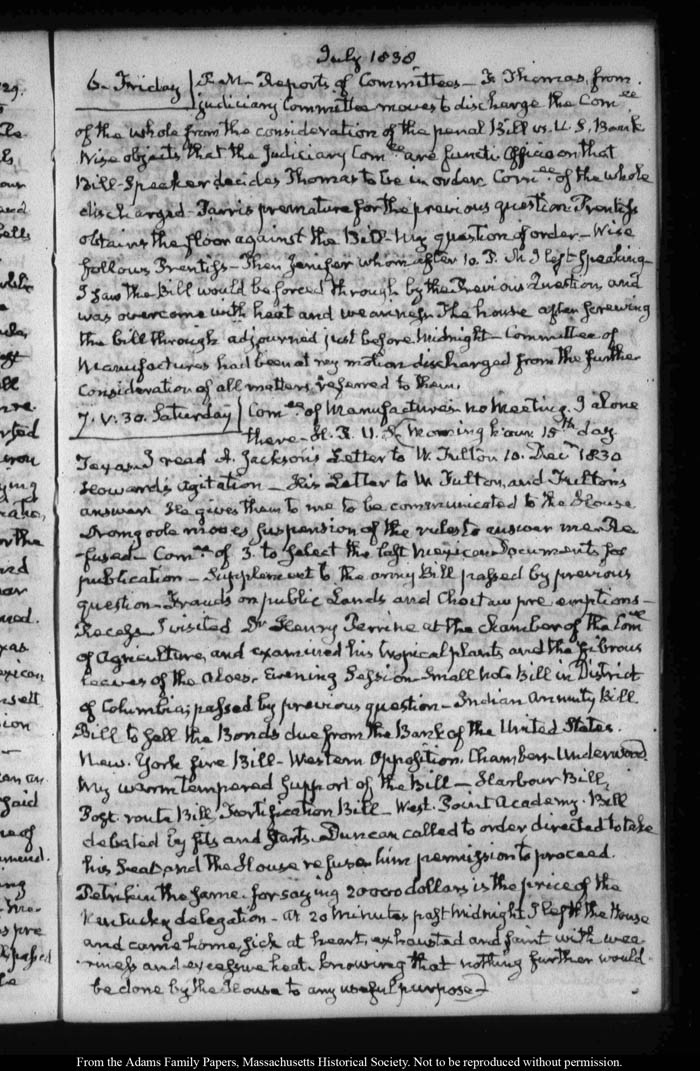 July 1838
6. Friday P. M. Reports of Committees — F. Thomas, from
judiciary Committee moves to discharge the Com.ee
of the whole from the consideration of the penal Bill vs. U. S. Bank
Wise objects that the Judiciary Com.ee are functi Officio on that
Bill - Speaker decides Thomas to be in order. Com.ee of the whole
discharged - Parris premature for the previous question. Prentiss
obtains the floor against the Bill - my question of order - Wise
follows Prentiss - Then Jenifer whom after 10. P. M. I left speaking -
I saw the Bill would be forced through by the Previous Question, and
was overcome with heat and weariness. The house after screwing
the bill through adjourned just before Midnight - Committee of
Manufactures had been at my motion discharged from the further
Consideration of all matters referred to them.
7. V. 30. Saturday Com.ee of Manufactures no Meeting. I alone
there - H. R. U. S. Morning hour 15th day
Texas I read A. Jackson's Letter to W. Fulton 10. Decr 1830
Howard's agitation - His Letter to W Fulton, and Fulton's
answer. He gives them to me to be communicated to the House
Dromgoole moves suspension of the rules to answer me. Re
fused - Com.ee of 3. to select the last Mexican Documents for
publication - Supplement to the army Bill passed by previous
question - Frauds on public Lands and Choctaw pre emptions -
Recess. I visited Dr Henry Perrine at the chamber of the Com.ee
of Agriculture, and examined his tropical plants and the fibrous
leaves of the Aloes. Evening Session - Small note Bill in District
of Columbia; passed by previous question - Indian Annuity Bill
Bill to sell the Bonds due from the Bank of the United States.
New York fire Bill - Western Opposition. Chambers. Underwood.
My warm tempered support of the Bill - Harbour Bill,
Post route Bill, Fortification Bill - West Point Academy. Bill
debated by fits and starts. Duncan called to order directed to take
his seat and the House refuses him permission to proceed.
Petrikin the same for saying 200000 dollars is the price of the
Kentucky delegation - at 20 minutes past midnight I left the House
and came home, sick at heart, exhausted and faint with wea-
riness and excessive heat. knowing that nothing further would
be done by the House to any useful purpose
From the Adams Family Papers, Massachusetts Historical Society. Not to be reproduced without permission.